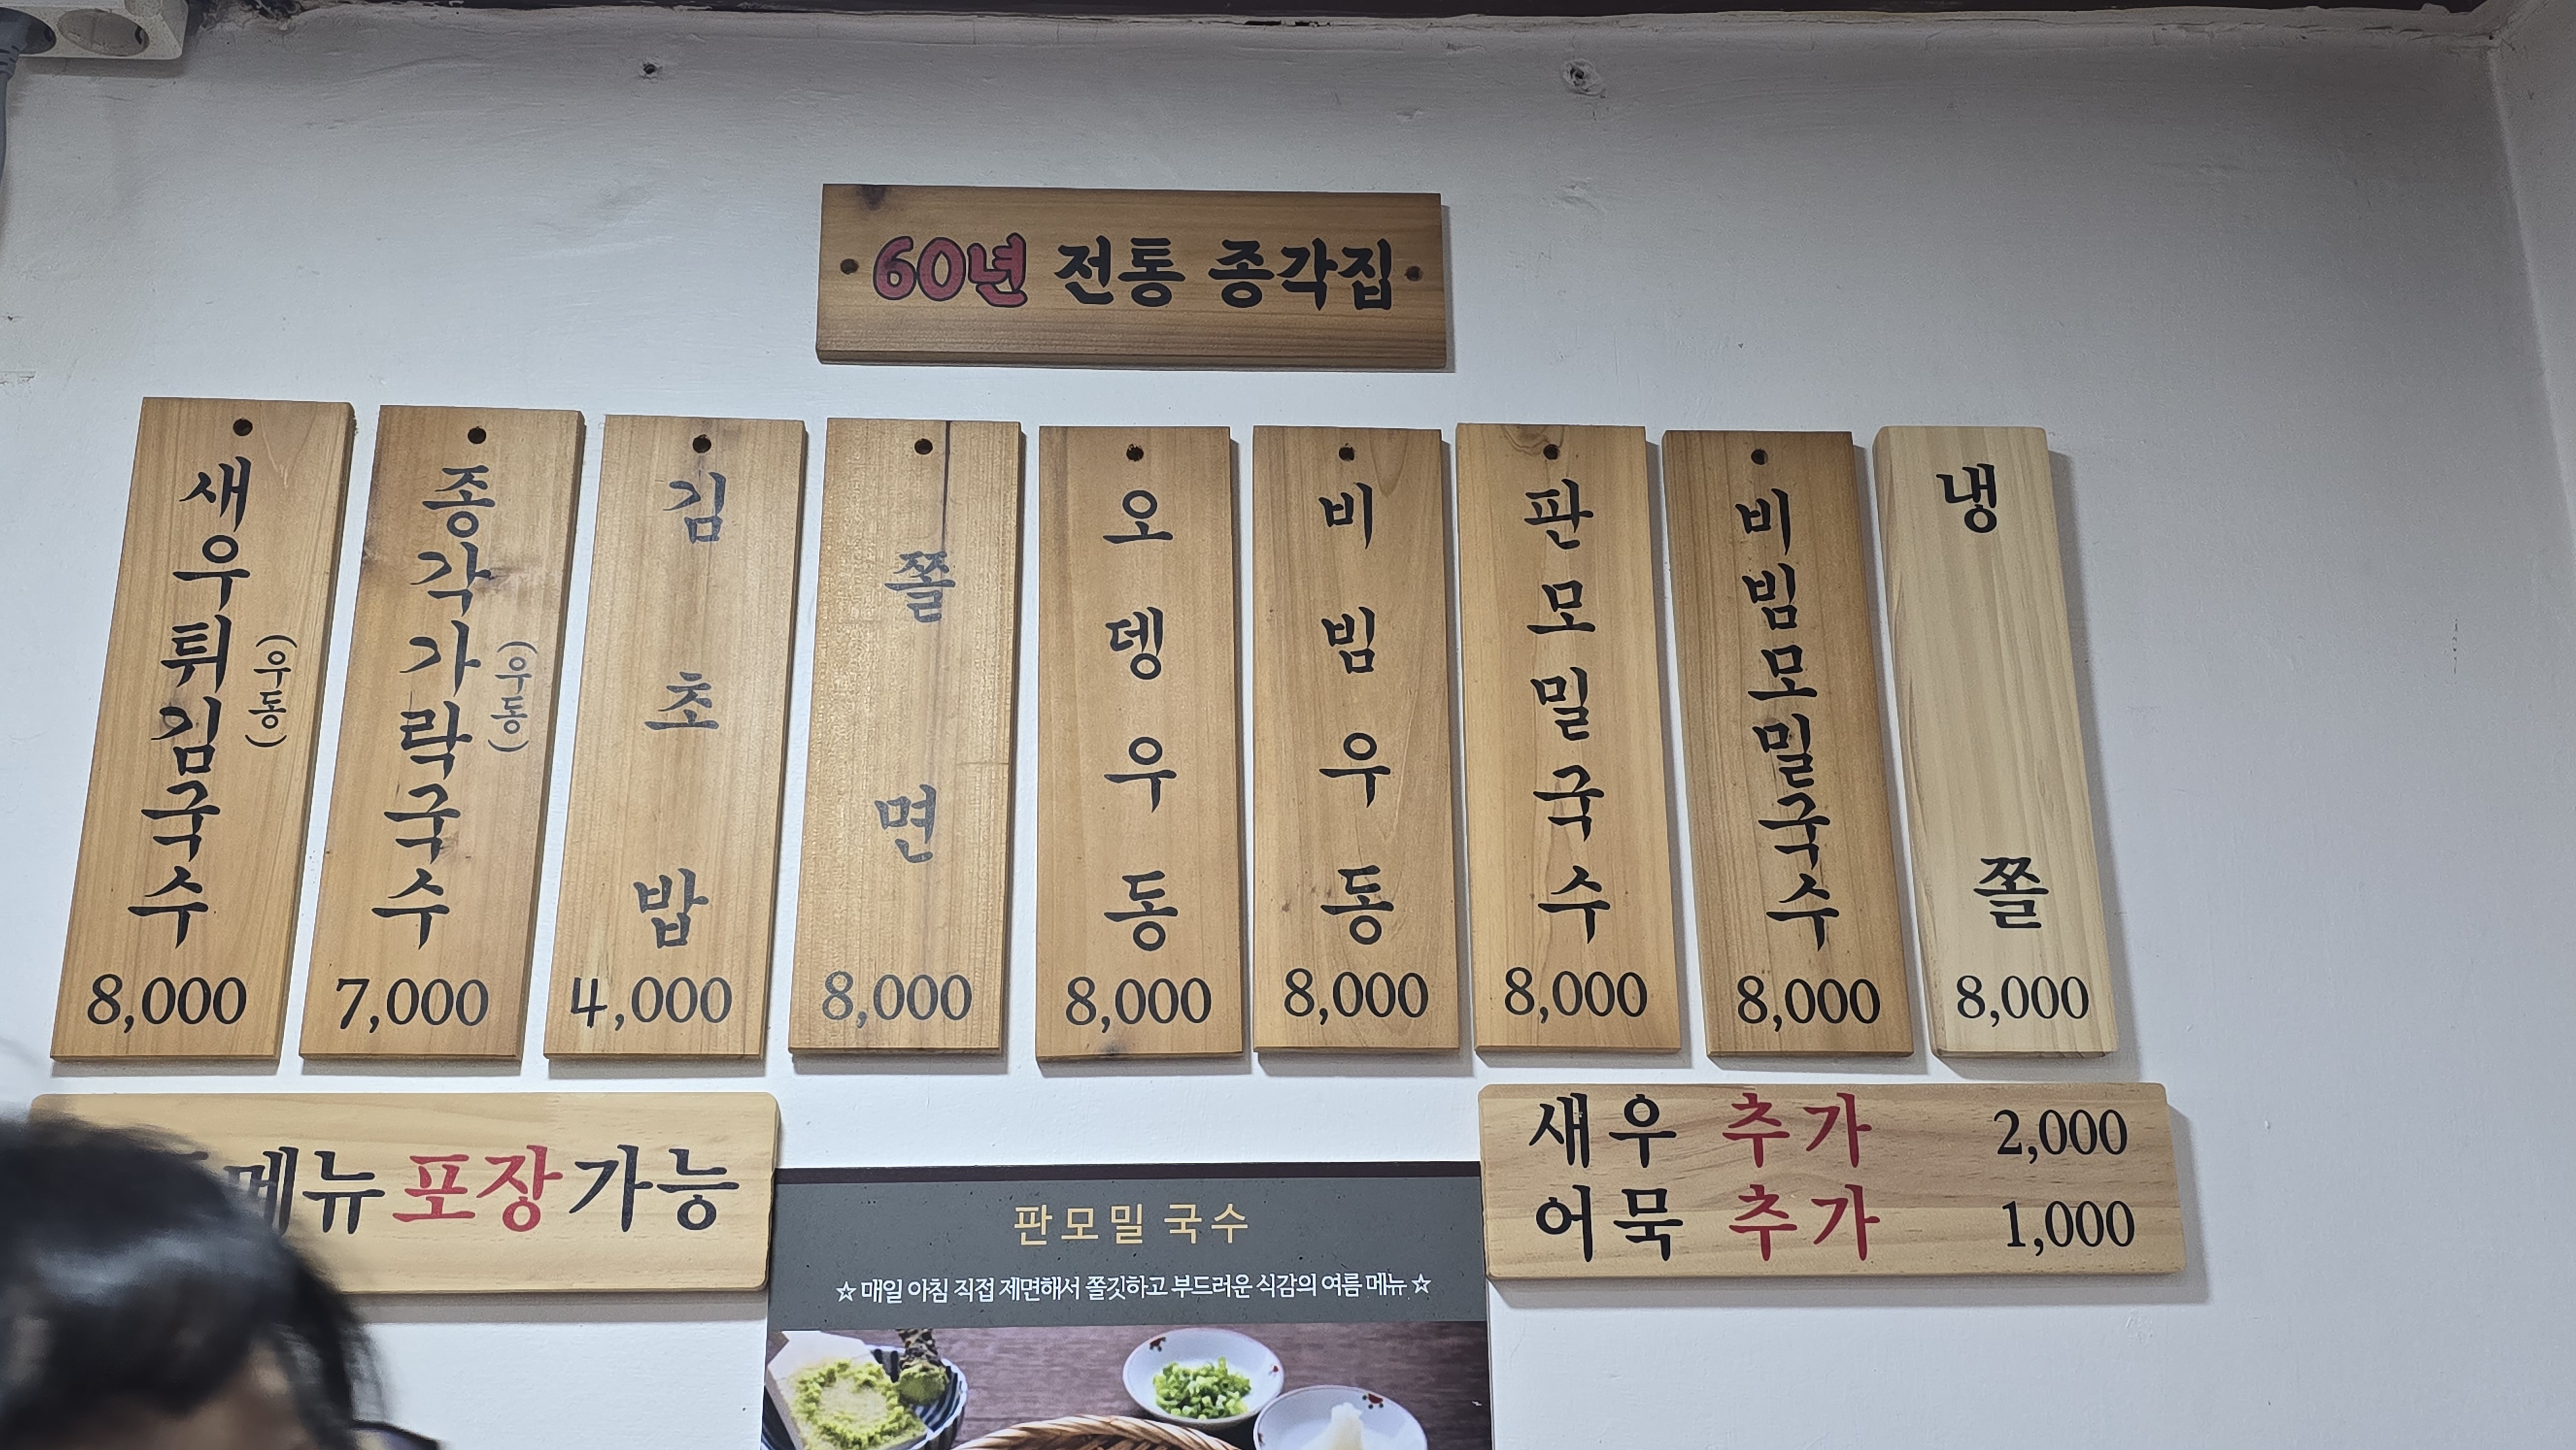 60년 전통 종각집
새우튀김국수
(우동)
8,000
종각가락국수
(우동)
7,000
김초밥
4,000
쫄면
8,000
오뎅우동
8,000
비빔우동
8,000
판모밀국수
8,000
비빔모밀국수
8,000
냉쫄
8,000
메뉴 포장 가능
새우 추가 2,000
어묵 추가 1,000
판모밀 국수
☆ 매일 아침 직접 제면해서 쫄깃하고 부드러운 식감의 여름 메뉴 ☆